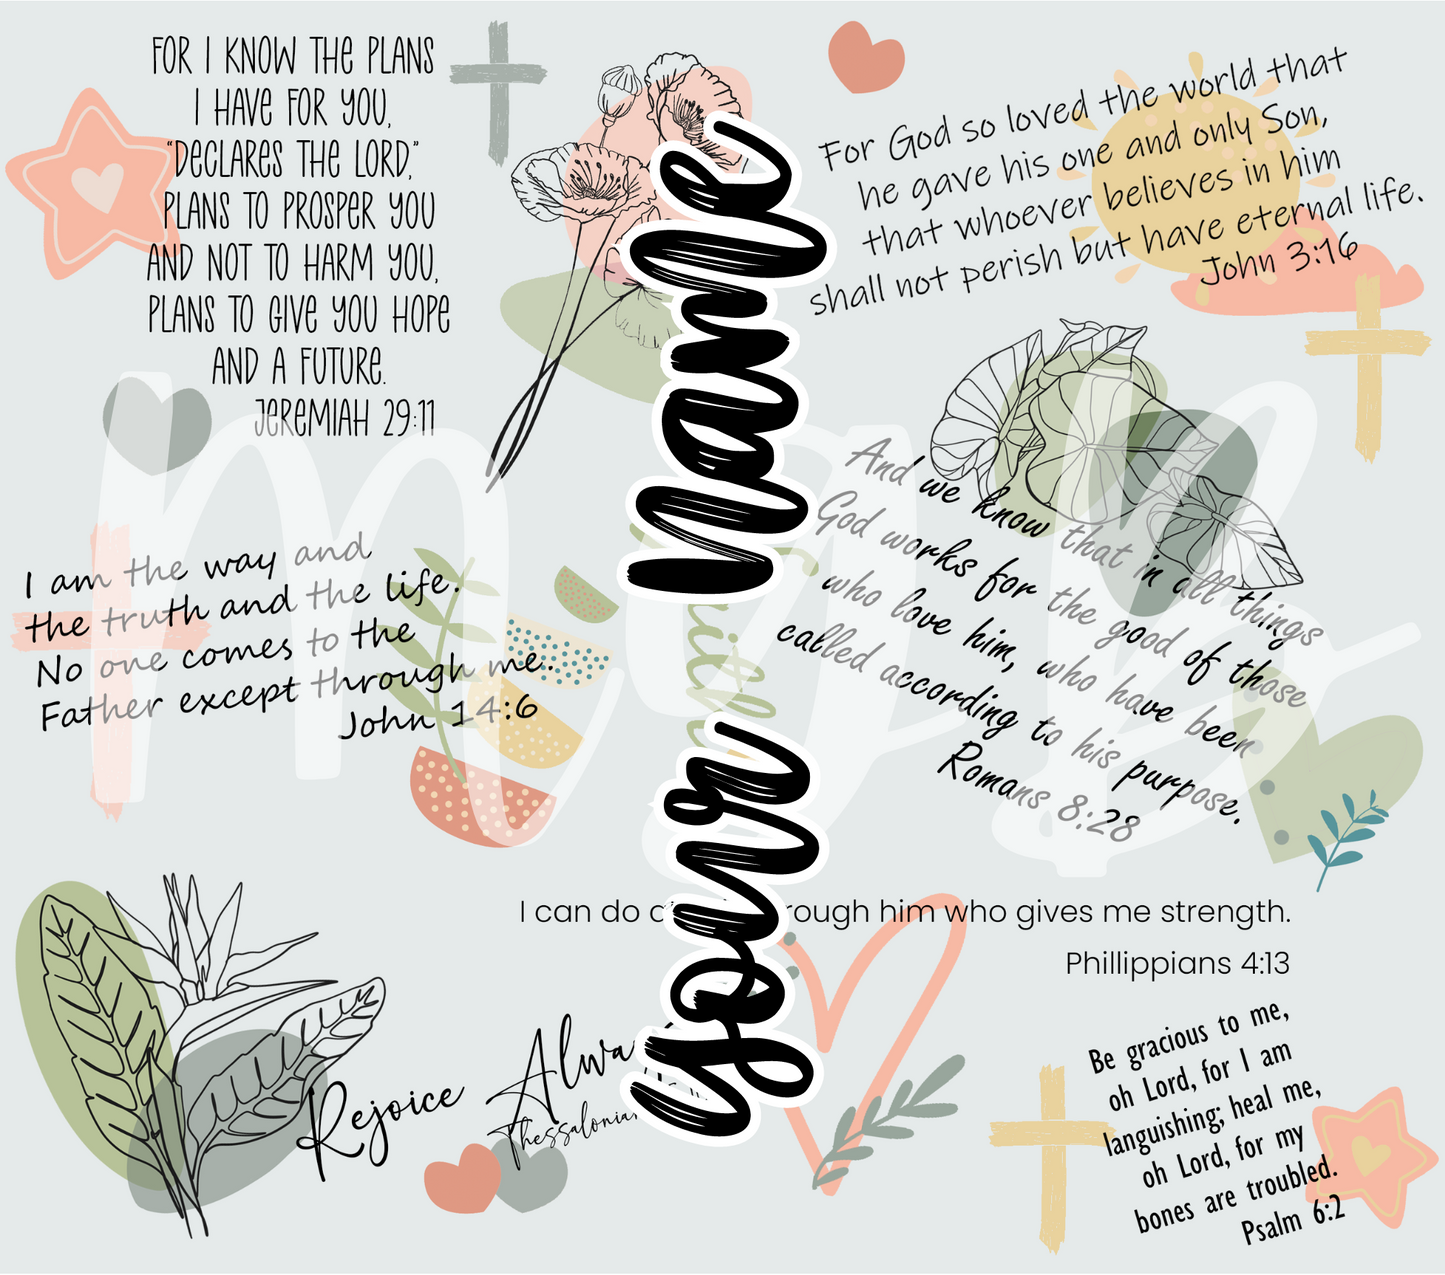 FOR I KNOW THE PLANS
I HAVE FOR YOU,
"DECLARES THE LORD,"
PLANS TO PROSPER YOU
AND NOT TO HARM YOU,
PLANS TO GIVE YOU HOPE
AND A FUTURE.
JEREMIAH 29:11
For God so loved the world that
he gave his one and only Son,
that whoever believes in him
shall not perish but have eternal life.
John 3:16
your name
I am the way and
the truth and the life.
No one comes to the
Father except through me.
John 14:6
And we know that in all things
God works for the good of those
who love him, who have been
called according to his purpose.
Romans 8:28
I can do rough him who gives me strength.
Phillippians 4:13
Rejoice Alwa
Thessalonia
Be gracious to me,
oh Lord, for I am
languishing; heal me,
oh Lord, for my
bones are troubled.
Psalm 6:2